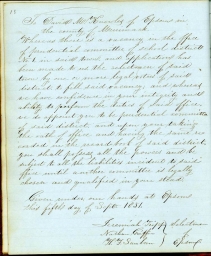 To David M. Knowles of Epsom in
the County of Merrimack
Whereas there is a vacancy in the office
of prudential committee of school district
No. 1 in said town and application has
been made to us the selectmen of said
town by one or more legal voters of said
district to fill said vacancy, we
have confidence in your integrity and
ability to perform the duties of said office,
do appoint you to be prudential committee
of said district, and upon your taking
the oath of office and having the same re-
corded in the records of said district,
you shall possess all the powers and be
subject to all the liabilities incident to said
office until another committee is legally
chosen and qualified in your stead.
Given under our hands at Epsom
this fifth day of Sept 1851
Jeremiah Tripp Selectmen
Nathan Griffin of
H. F. Sanborn Epsom